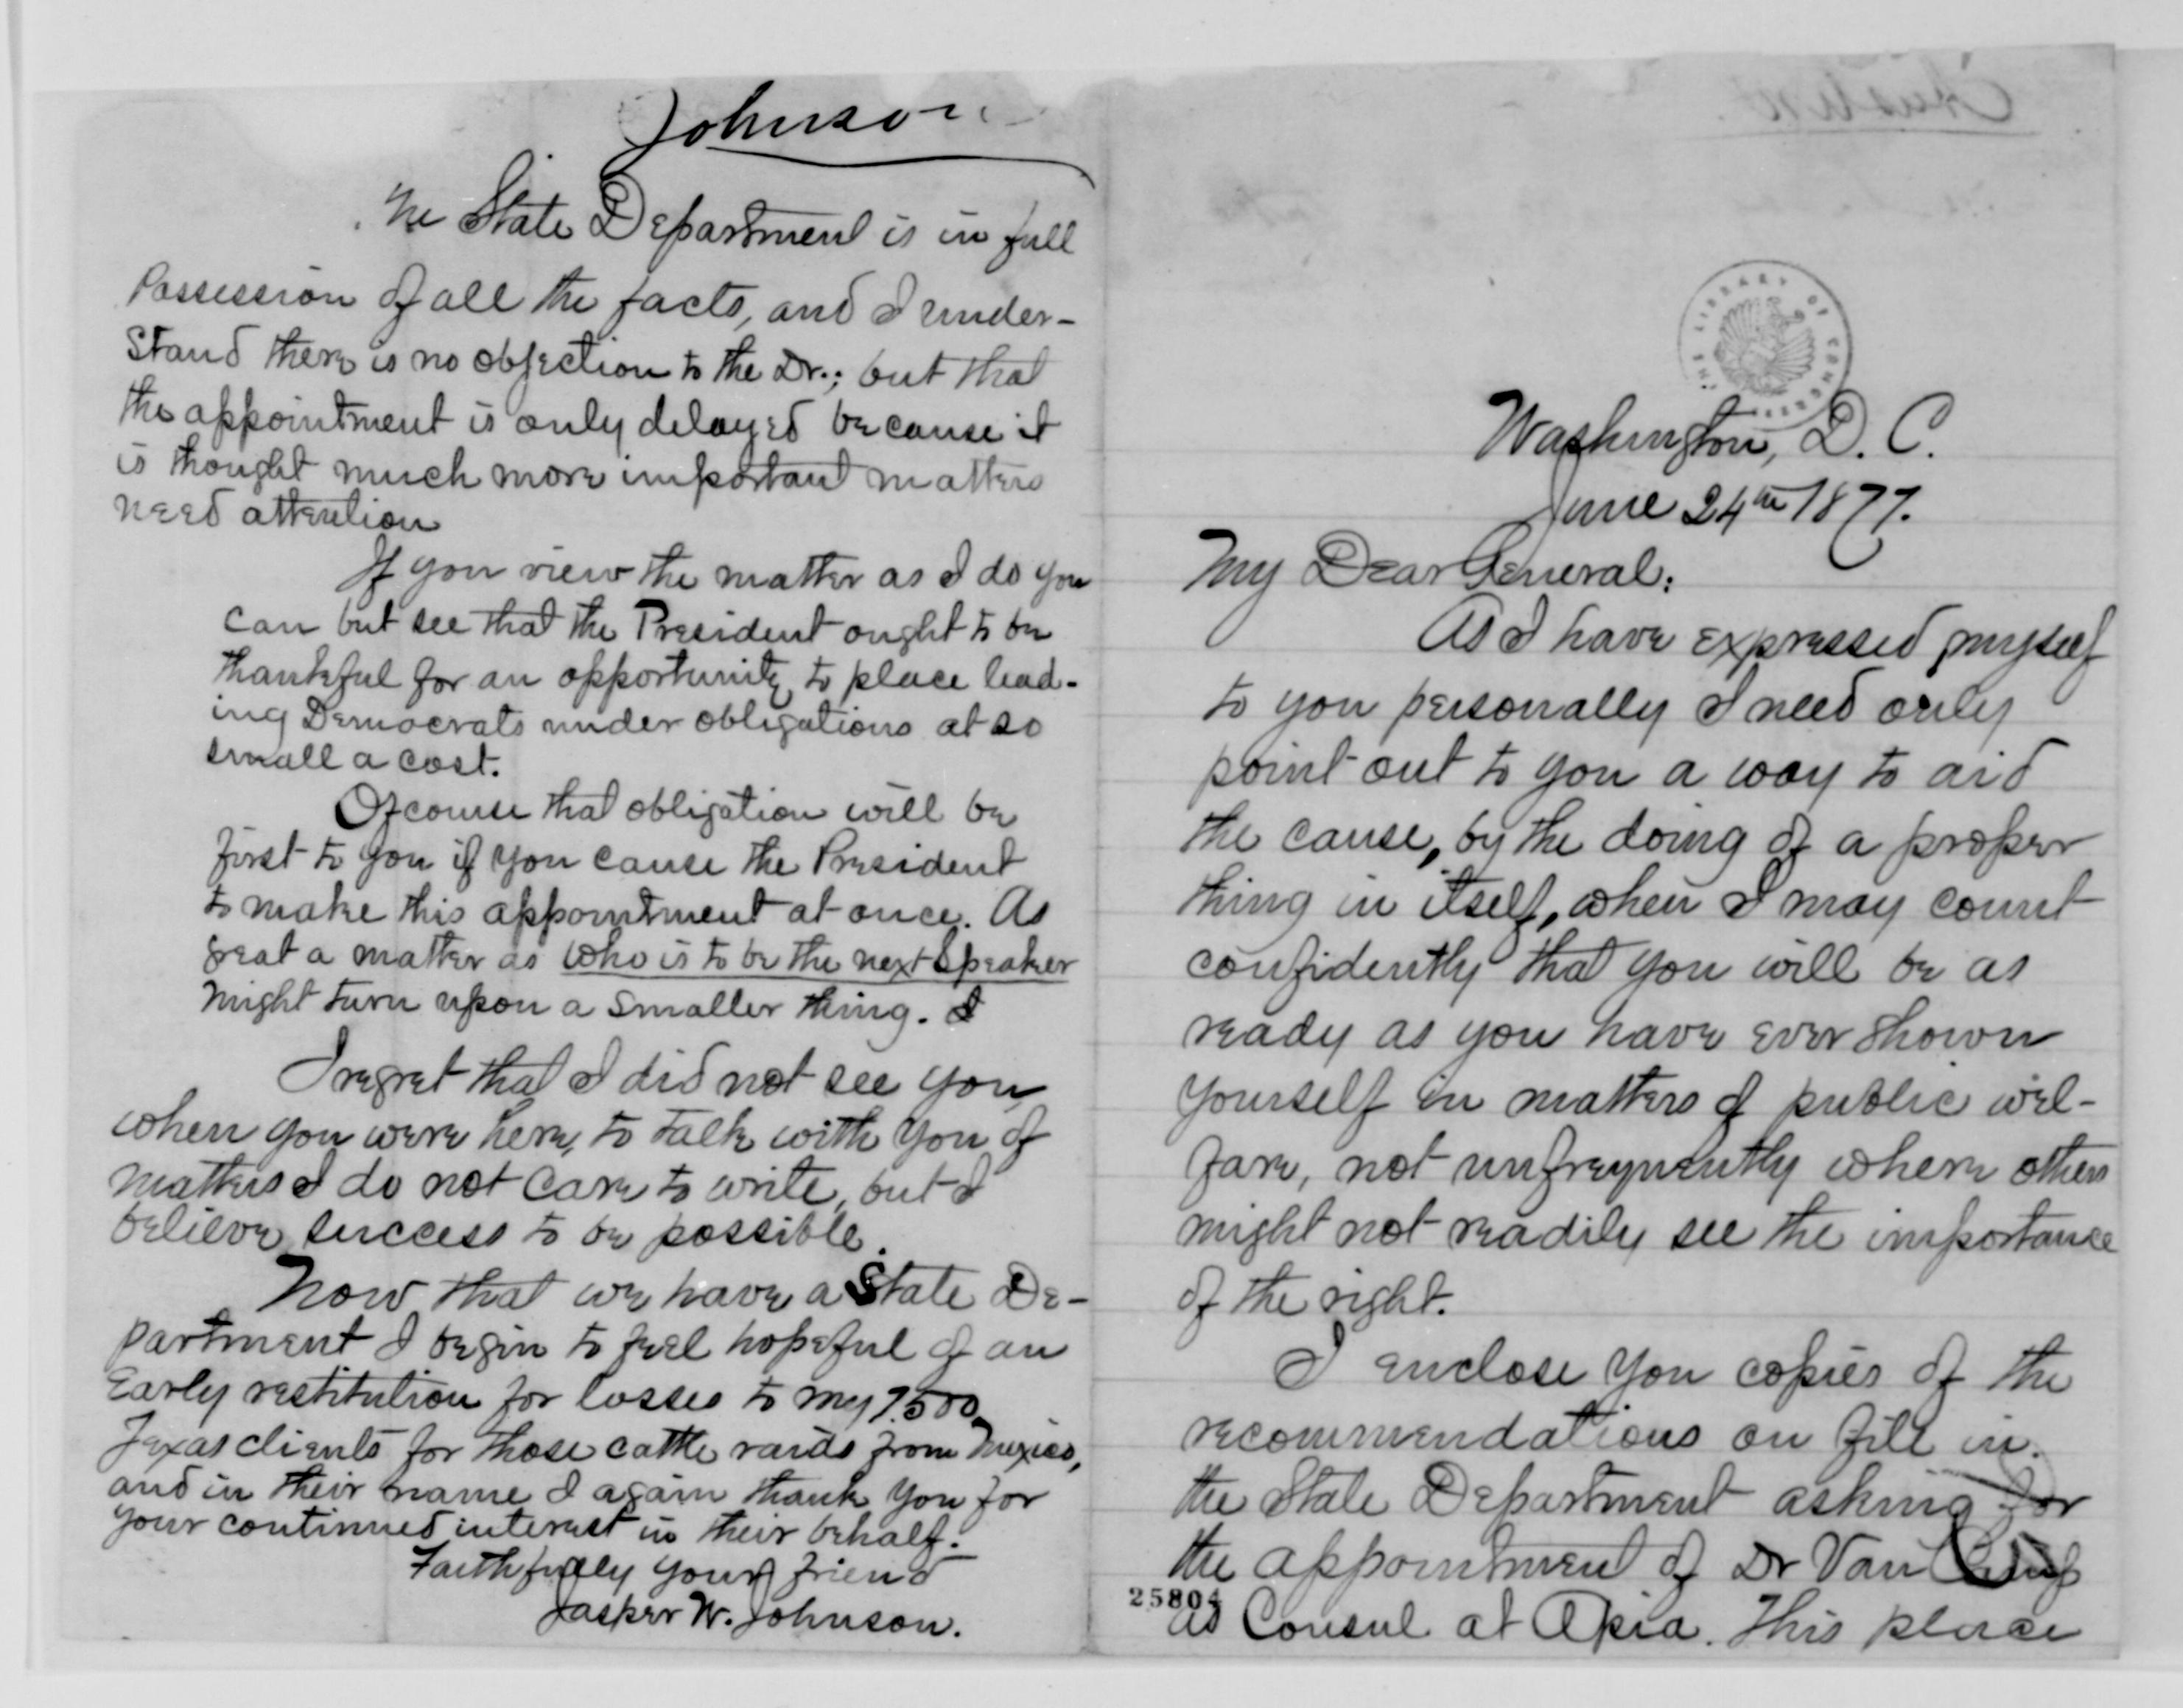 Johnson
The State Department is in full
Possession of all the facts, and I under-
stand there is no objection to the Dr.; but that
the appointment is only delayed because it
is thought much more important matters
need attention
If you view the matter as I do you
can but see that the President ought to be
thankful for an opportunity to place lead-
ing Democrats under obligations at so
small a cost.
Of course that obligation will be
first to you if you cause the President
to make this appointment at once. As
great a matter as who is to be the next Speaker
might turn upon a smaller thing. I
I regret that I did not see you,
when you were here, to talk with you of
matters I do not care to write, but I
believe success to be possible.
Now that we have a State De-
partment I begin to feel hopeful of an
Early restitution for losses to my 7.500
Texas clients for those cattle raids from Mexico,
and in their name I again thank you for
your continued interest in their behalf.
Faithfully your friend
Jasper W. Johnson.
THE LIBRARY OF CONGRESS
Washington, D. C.
June 24th 1877.
My Dear General:
As I have expressed myself
to you personally I need only
point out to you a way to aid
the cause, by the doing of a proper
thing in itself, when I may count
confidently that you will be as
ready as you have ever shown
yourself in matters of public wel-
fare, not unfrequently where others
might not readily see the importance
of the right.
I enclose you copies of the
recommendations on file in
the State Department asking for
the appointment of Dr Van
25804
as Consul at Apia. This place